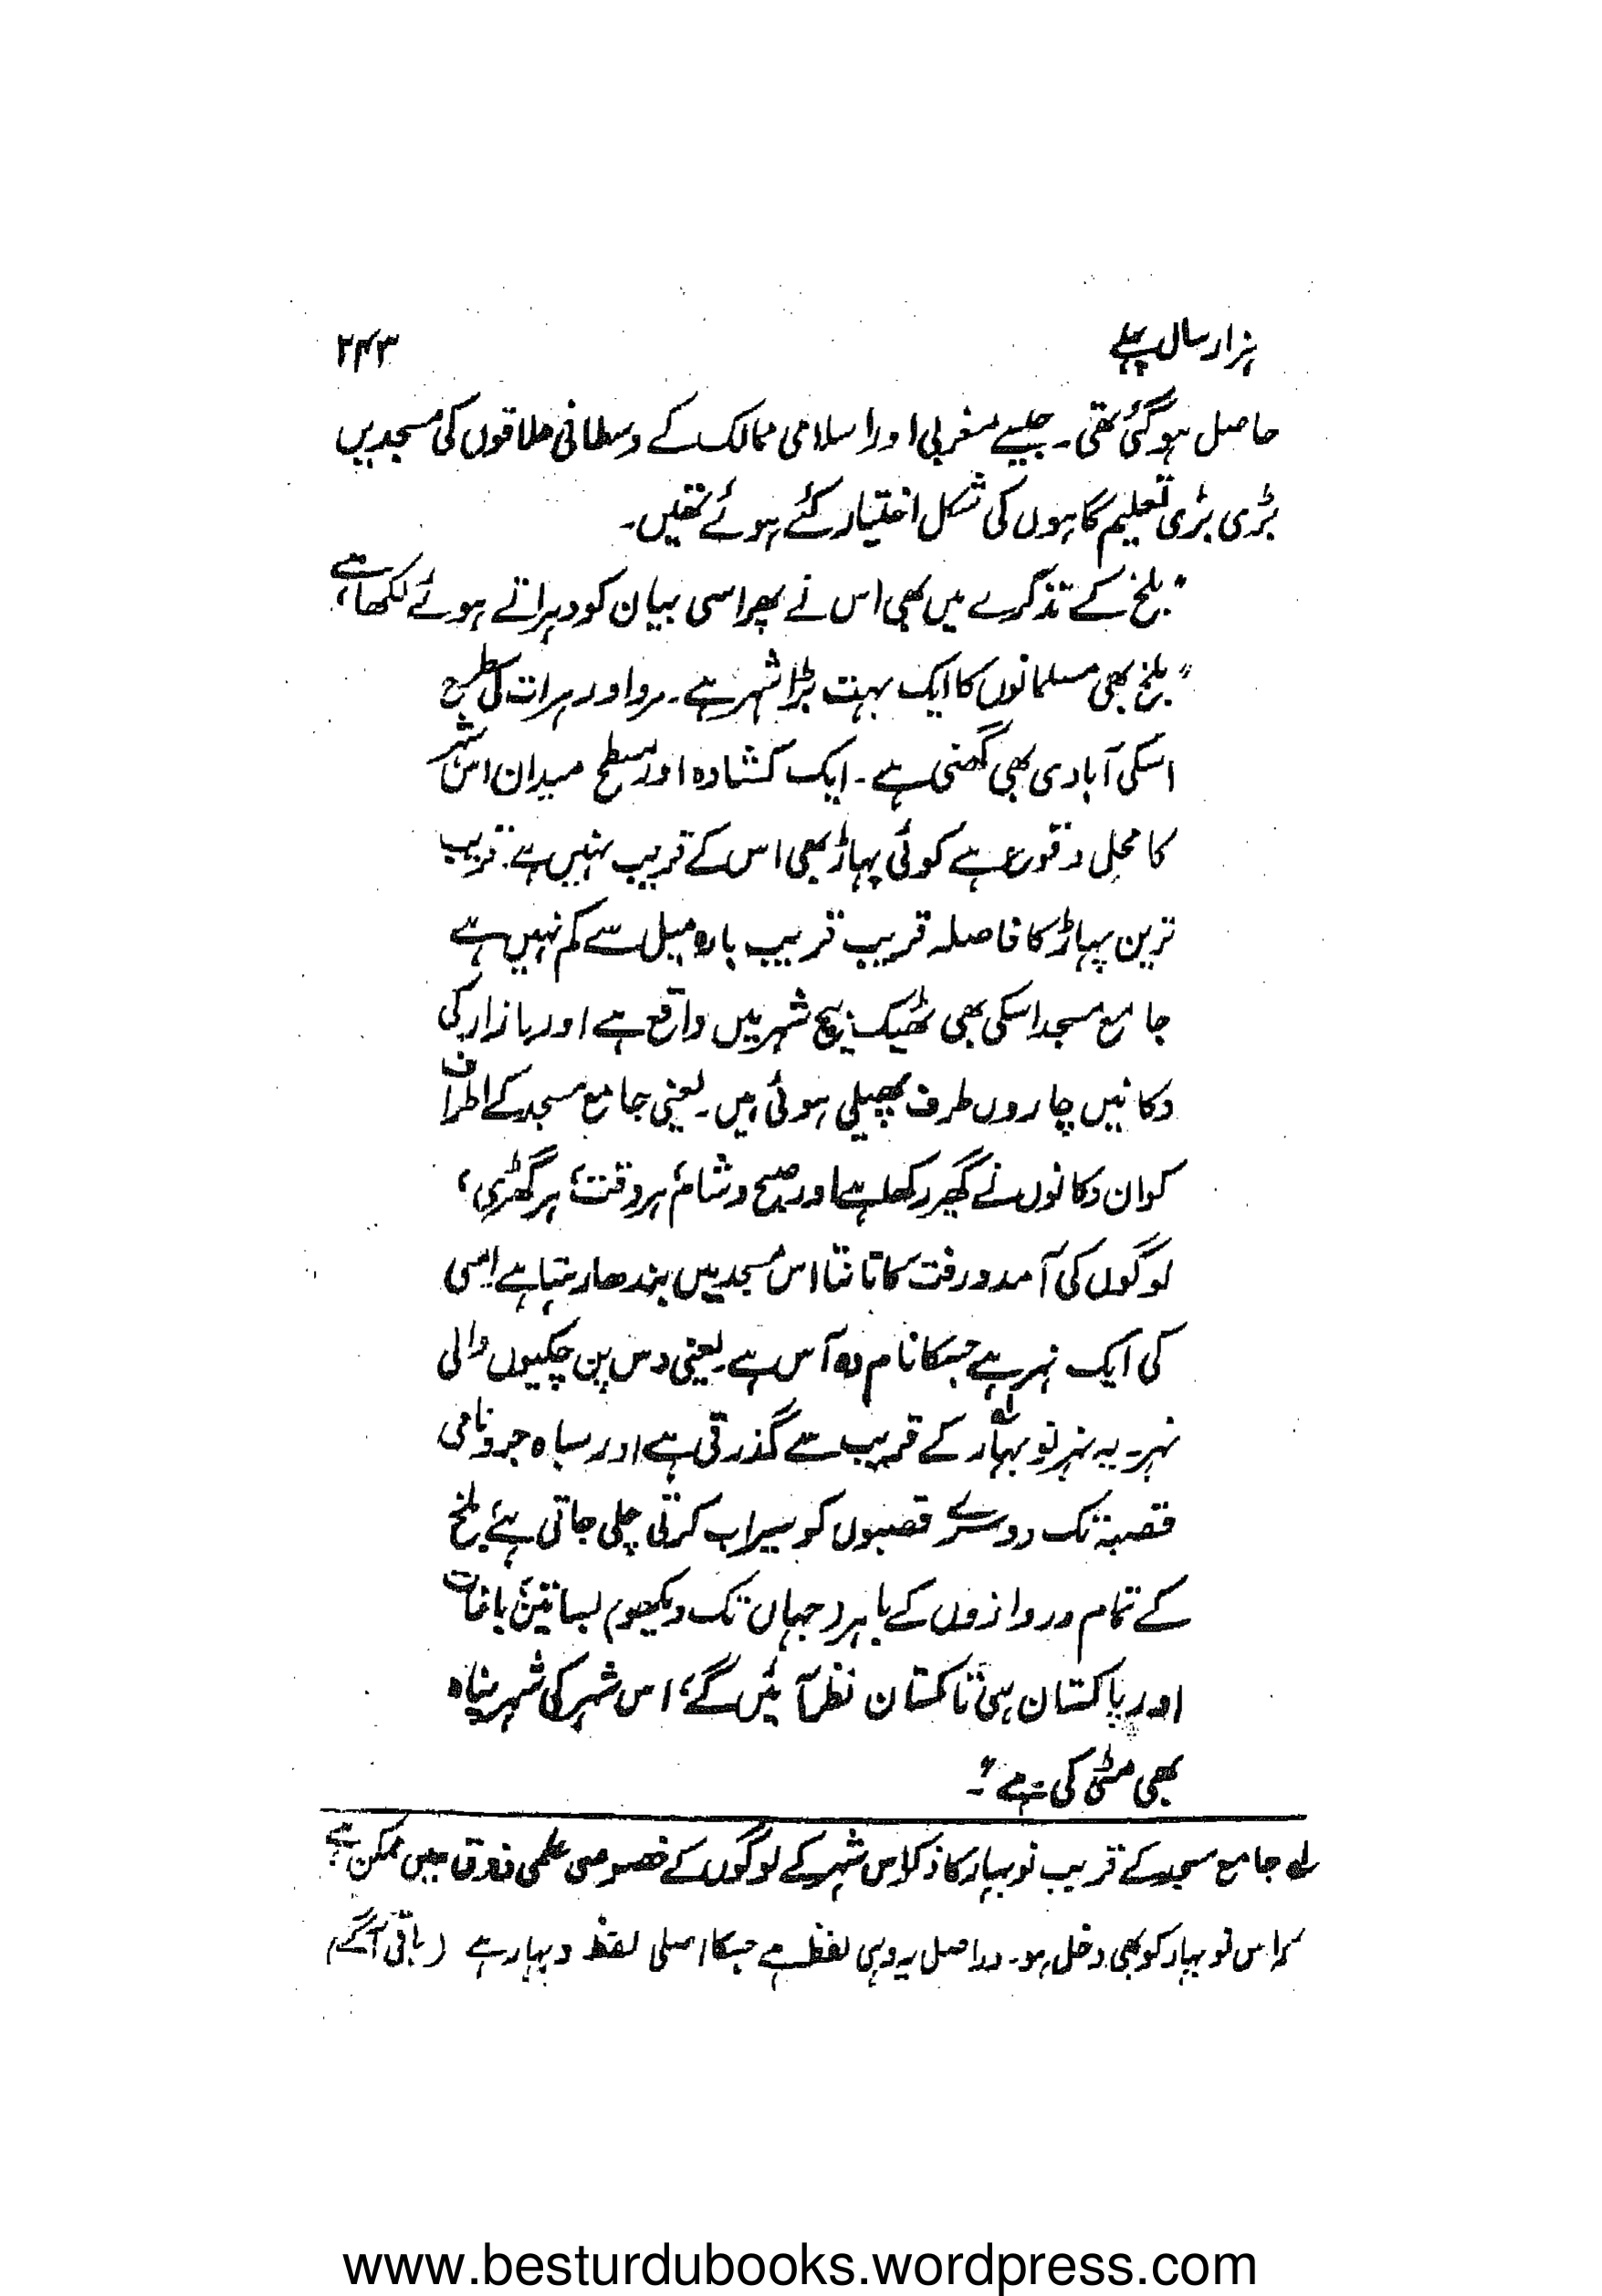 ہزار سال پہلے ۲۴۳
حاصل ہوگئی تھی۔ جیسے مغربی اور اسلامی ممالک کے وسطانی علاقوں کی مسجدیں
بڑی بڑی تعلیم گاہوں کی شکل اختیار کئے ہوئے تھیں۔
بلخ کے تذکرے میں بھی اس نے پھر اسی بیان کو دہراتے ہوئے لکھا ہے،
"بلخ بھی مسلمانوں کا ایک بہت بڑا شہر ہے۔ مرو اور ہرات کی طرح
اسکی آبادی بھی گھنی ہے۔ ایک کشادہ اور مسطح میدان اس شہر
کا محل وقوع ہے کوئی پہاڑ بھی اس کے قریب نہیں ہے۔ قریب
ترین پہاڑ کا فاصلہ قریب قریب بارہ میل سے کم نہیں ہے
جامع مسجد اسکی بھی ٹھیک بیچ شہر میں واقع ہے اور بازار کی
دکانیں چاروں طرف پھیلی ہوئی ہیں۔ یعنی جامع مسجد کے اطراف
کو ان دکانوں نے گھیر رکھا ہے اور صبح و شام، ہر وقت، ہر گھڑی،
لوگوں کی آمد و رفت کا تانتا اس مسجد میں بندھا رہتا ہے اسی
کی ایک نہر ہے جسکا نام دہ آس ہے۔ یعنی دس پن چکیوں والی
نہر۔ یہ نہر نو بہار لہ کے قریب سے گذرتی ہے اور سیاہ جرد نامی
قصبہ تک دوسرے قصبوں کو سیراب کرتی چلی جاتی ہے، بلخ
کے تمام دروازوں کے باہر (جہاں تک دیکھو) بساتین، باغات
اور پاکستان ہی تاکستان نظر آئیں گے، اس شہر کی شہر پناہ
بھی مٹی کی ہے"۔
لہ جامع مسجد کے قریب نو بہار کا ذکر اس شہر کے لوگوں کے خصوصی علمی ذوق میں ممکن ہے
کہ اس نو بہار کو بھی دخل ہو۔ دراصل یہ وہی لفظ ہے جسکا اصلی لفظ وہار ہے (باقی آگے)
www.besturdubooks.wordpress.com